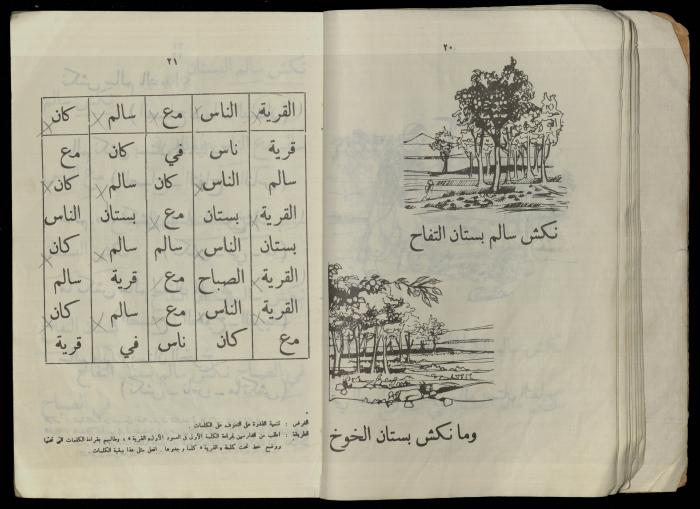 ٢٠
نكش سالم بستان التفاح
وما نكش بستان الخوخ
٢١
القرية الناس مع سالم كان
قرية ناس في كان مع
سالم الناس كان سالم كان
القرية بستان مع بستان الناس
بستان الناس سالم سالم كان
القرية الصباح مع قرية سالم
القرية الناس مع سالم كان
مع كان ناس في قرية
الغرض : تنمية القدرة على التعرف على الكلمات .
الطريقة : اطلب من الدارسين قراءة الكلمة الأولى في العمود الأول « القرية » ، وطالبهم بقراءة الكلمات التي تحتها
ووضع خط تحت كلمة « القرية » كلما وجدوها . افعل مثل هذا ببقية الكلمات .